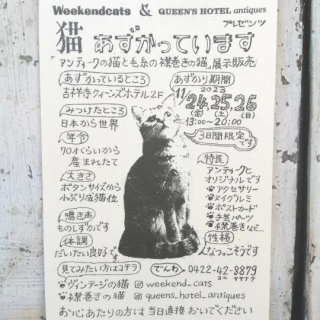 Weekendcats & QUEEN'S HOTEL antiques
プレゼンツ
猫 あずかっています
アンティークの猫と毛糸の襟巻きの猫、展示販売
あずかっているところ
吉祥寺クィーンズホテル2F
みつけたところ
日本から世界
年令
70才くらいから
産まれたて
大きさ
ボタンサイズから
小ぶり成猫位
鳴き声
ものしずかです
体調
だいたい良好です
あずかり期間
11/2023
24, 25, 26
(金) (土) (日)
13:00~20:00
3日間限定です
特長
アンティークと
オリジナルです
アクセサリー
ヌイグルミ
ポストカード
手芸パーツ
襟巻きなど…
性格
人なつっこそうです
見てみたい方はコチラ
でんわ 0422-42-8879
ヴィンテージの猫 weekend_cats
襟巻きの猫 queens_hotel_antiques
お心あたりの方は当日直接おいでください